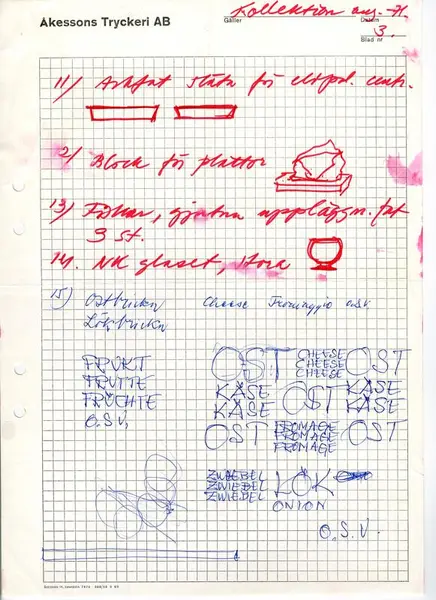 Åkessons Tryckeri AB
Gäller
Kollektion aug. -71.
Datum
3.
Blad nr
11/ Askfat släta för
12/ Block för plattor
13/ Fiskar, gjutna uppläggn. fat
3 st.
14. NK glaset, stora
15) Ostbrickn Cheese Formaggio o.s.v
Lökbrickn
FRUKT
FRUTTE
FRÜCHTE
O.S.V,
OST CHEESE CHEESE CHEESE OST
KÄSE KÄSE OST KÄSE KÄSE
OST FROMAGE FROMAGE FROMAGE OST
ZWIEBEL ZWIEBEL ZWIEBEL LÖK
ONION
O.S.V.